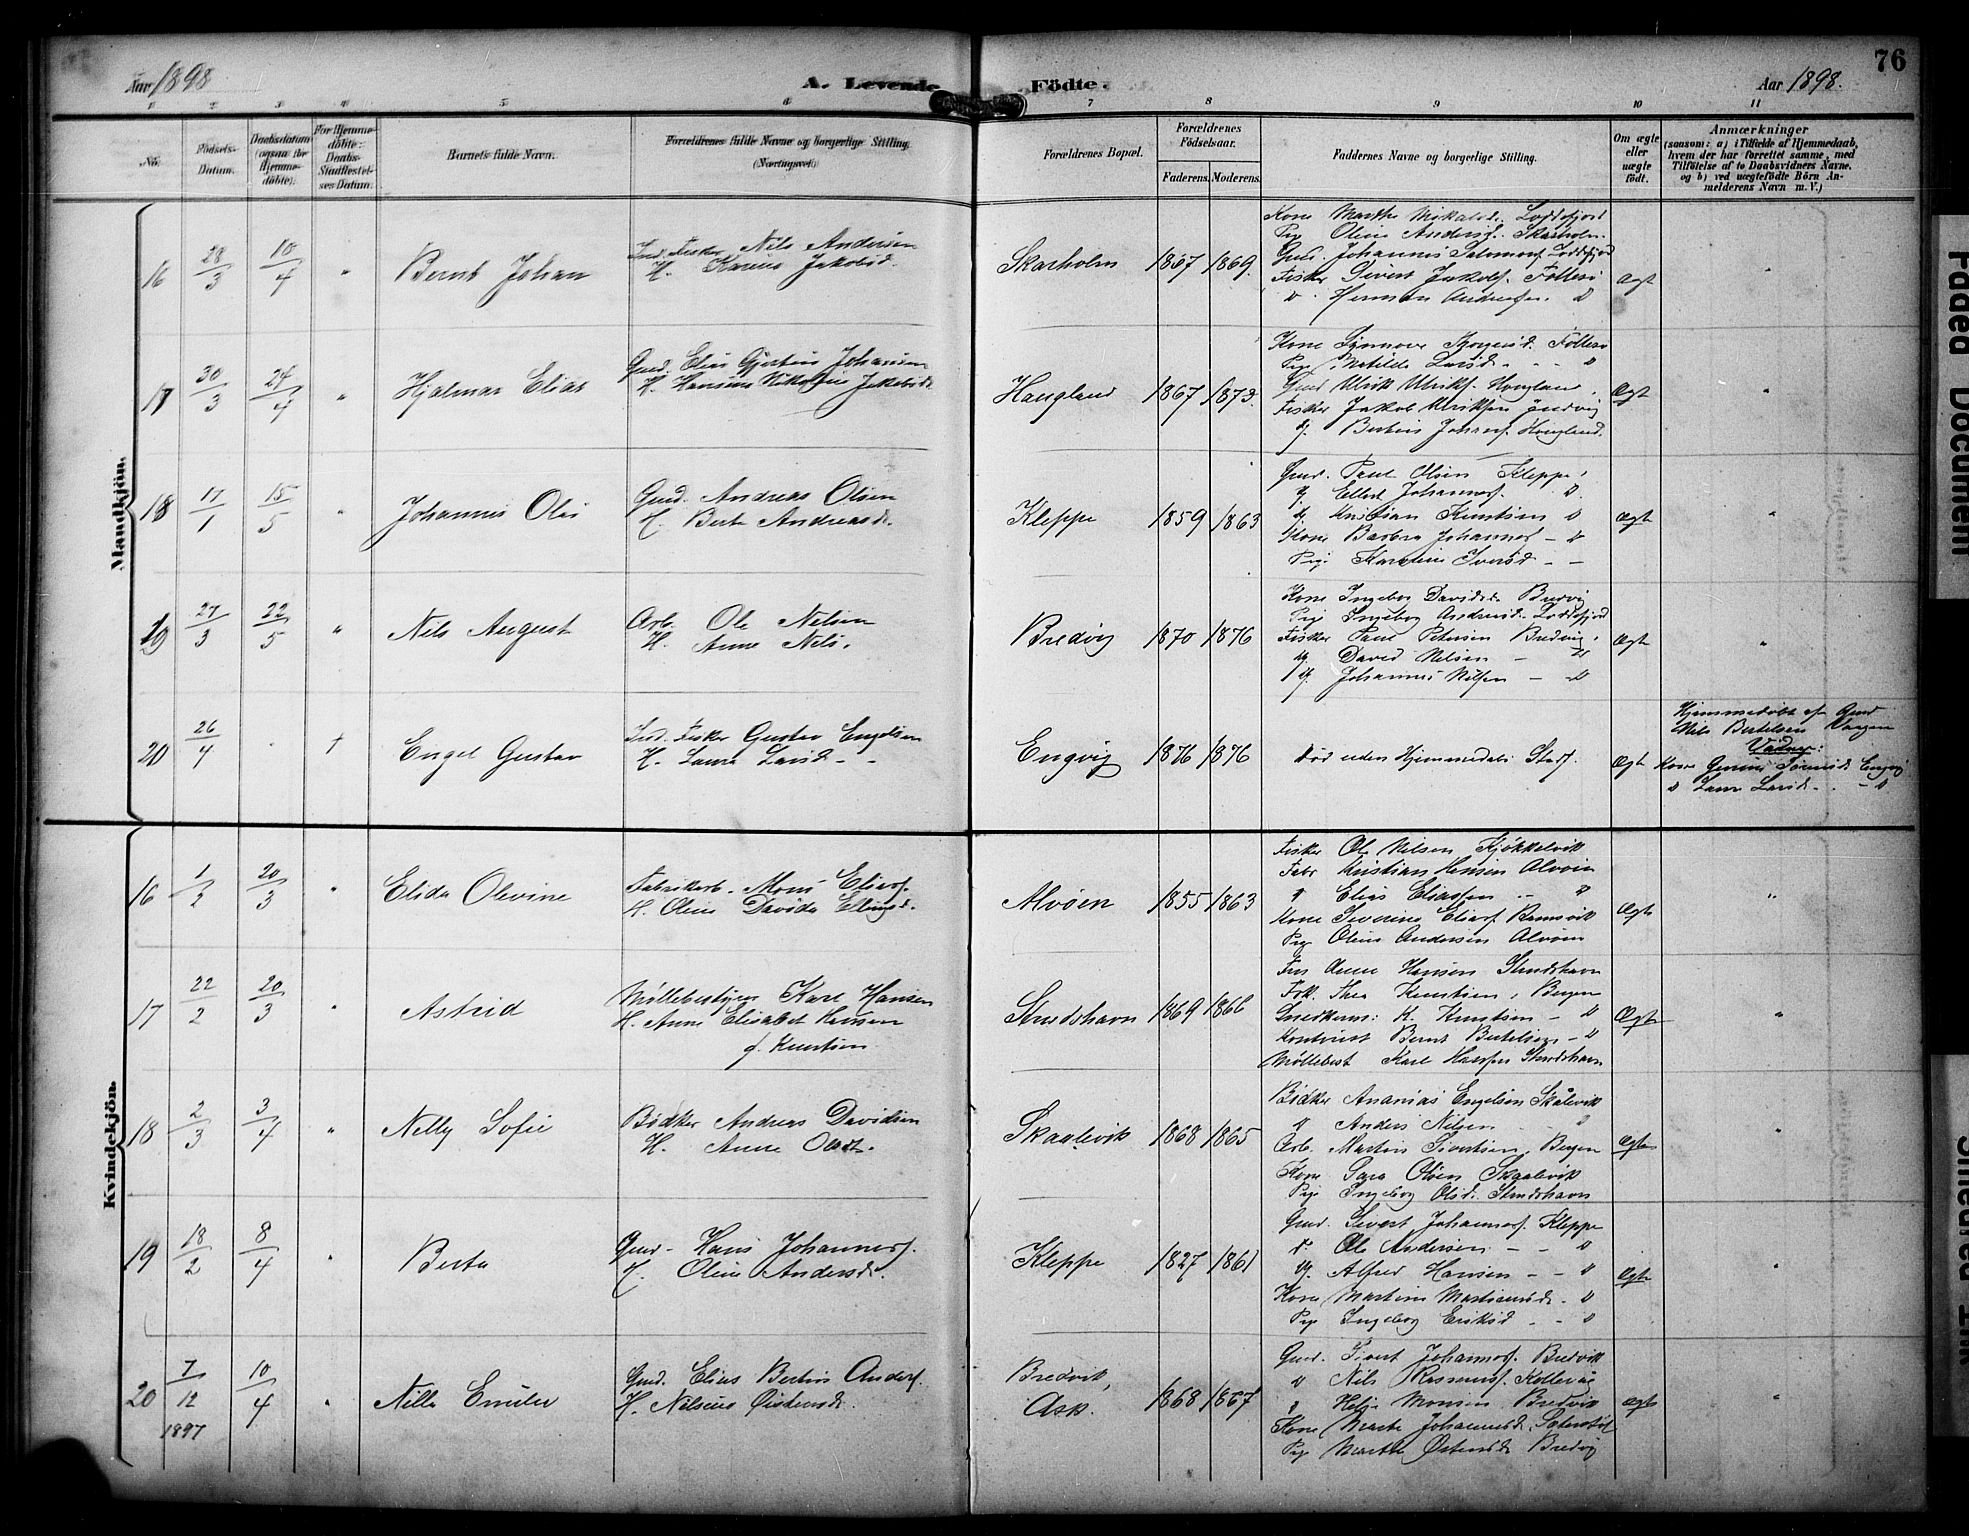 76
Aar 1898
A. Levende Födte.
Aar 1898.
1 2 3 4 5 6 7 8 9 10 11
No.
Födsels-Datum.
Daabsdatum (ogsaa for Hjemme-döbte).
For Hjemme-döbte: Daabs-Stadfæstel-ses Datum.
Barnets fulde Navn.
Forældrenes fulde Navne og borgerlige Stilling.
(Næringsvei.)
Forældrenes Bopæl.
Forældrenes Födselsaar.
Faderens. Moderens.
Faddernes Navne og borgerlige Stilling.
Om ægte eller uægte födt.
Anmærkninger
(saasom: a) i Tilfælde af Hjemmedaab,
hvem der har forrettet samme, med
Tilföielse af to Daabsvidners Navne,
og b) ved uægtefödte Börn An-
melderens Navn m. V.)
Mandkjön.
16 28/3 10/4 " Bernt Johan
Ind. Fisker Nils Andersen
H. Karina Jakobsd.
Skarholm 1867 1869.
Kone Marthe Mikalsd. Loddefjord
Pige Oline Andersd. Skarholm.
Johannes Salomons. Loddefjord
Fisker Sivert Jakobs. Follesø
" Herman Andreas. "
Ægt "
17 30/3 24/4 " Hjalmar Elias
Gmd. Elias Gjertius Johansen
H. Hansine Nikoline Jakobsd.
Haugland 1867 1873.
Kone Synnøve Follesø
Pige Matilde Larsd. - - "
Gmd Ulrik Ulriks. Haugland
Fisker Jakob Ulriksen
" Bertin Johans. Haugland.
Ægt "
18 17/1 15/5 " Johannes Olai
Gmd. Andreas Olsen
H. Berte Andreasd.
Kleppe 1859 1863
Gmd. Paul Olsen Kleppe
" Ellert Johannes. "
" Kristian Knutsen "
Kone Barbra Johannes - "
Pige Karoline Iversd - -
Ægt "
19 27/3 22/5 " Nils August
Arb. Ole Nelson
H. Anne Nils.
Bredvig 1870 1876
Kone Ingebor Davidsd. Bredvig
Pige Ingeborg Andersd. Loddefjord
Fisker Paul Petersen Bredvig
" David Nilsen - "
" Johannes Nilsen - "
Ægt "
20 26/4 . † Engel Gustav
Ind. Fisker Gustav Engelsen
H. Laura Larsd - -
Engvig 1876 1876
Død uden Hjemmedaabs Stadf.
Ægt
Hjemmedøbt af Gmd
Nils Bertelsen
Vidner:
Kone Sørensd. Engvig
" Laura Larsd. - "
Kvindekjön.
16 1/2 20/3 " Elida Olevine
Fabrikarb. Mons Elias.
H. Oline Davida Ellingsd.
Alvøen 1855 1863
Fisker Ole Nilsen Kjøkkelvik
Fabr Kristian Hansen Alvøen
" Elias Eliassen - "
Kone Severine Elias. Ramsvik
Pige Oline Andersen Alvøen
Ægt "
17 22/2 20/3 " Astrid
Møllebestyrer Karl Hansen
H. Anne Elisabet Hansen
f. Knutsen
Strudshavn 1869 1866
Fru Anne Hansen Strudshavn
Frk. Thea Knutsen, Bergen
Snedkerm: K. Knutsen - "
Kontorist Bernt Bertelsen - "
Møllebest Karl Hansen Strudshavn
Ægte "
18 2/3 3/4 " Nelly Sofie
Bødker Andreas Davidsen
H. Anne Olsdt.
Skaalevik 1868 1865
Bødker Ananias Engelsen Skålevik
" Anders Nilsen - "
Arb. Martin Sivertsen Bergen
Kone Sara Olsen Skaalevik
Pige Ingeborg Olsd. Strudshavn
Ægte "
19 18/2 8/4 " Berta
Gmd - Hans Johannes.
H. Oline Andersd.
Kleppe 1827 1861
Gmd. Sivert Johannes. Kleppe
" Ole Andersen - - "
Ug. Alfred Hansen - - "
Kone Martine Martinusd. - "
Pige Ingeborg Eriksd - - "
Ægte "
20 7/12 1897 10/4 " Nilla Emilie
Gmd. Elias Bertin Anders.
H. Nilsine Øistensd.
Bredvik, Ask. 1868 1867
Gmd. Sivert Johannes. Bredvik
" Nils Rasmus. Kollevåg
" Helje Monsen Bredvik
Kone Marta Johannesd.
Pige Marthe Østensd. Bredvig
Ægte "
Faded Document
Smeared Ink